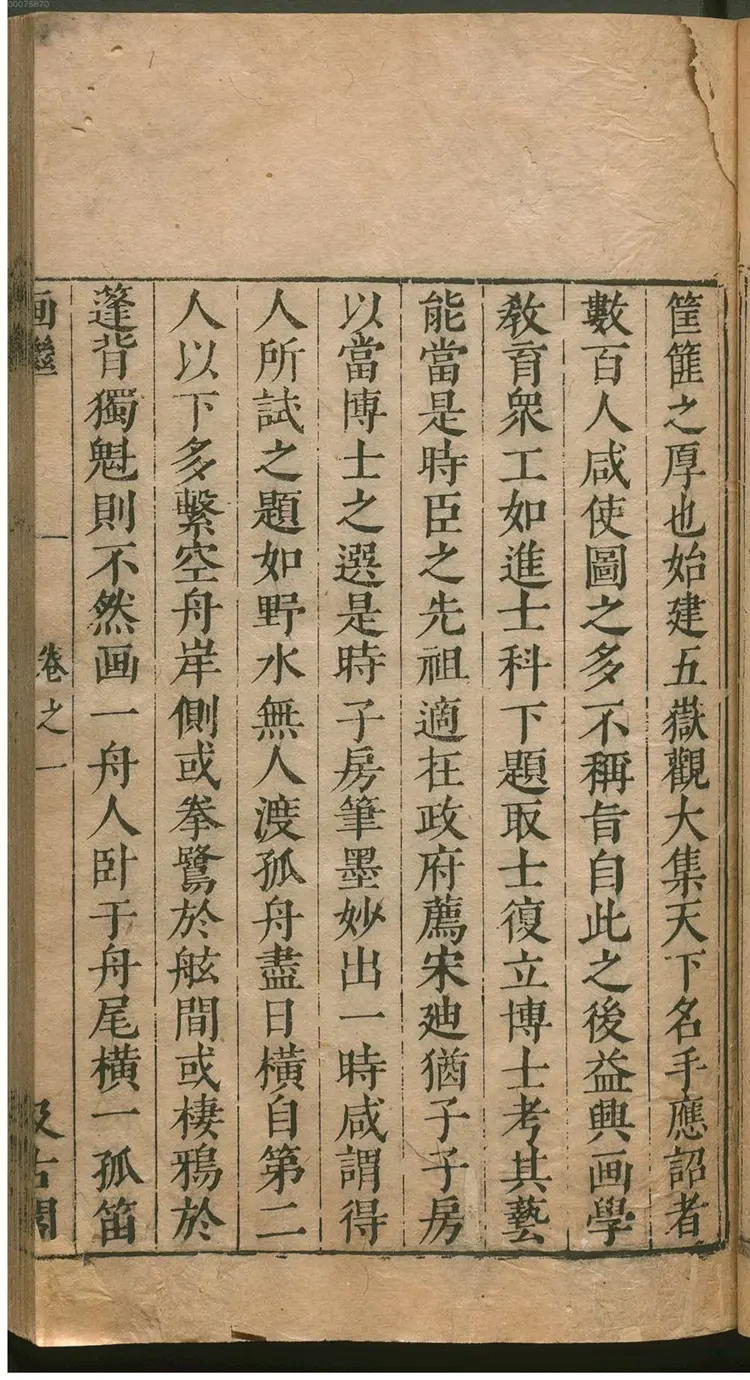 筐篚之厚也始建五嶽觀大集天下名手應詔者
數百人咸使圖之多不稱旨自此之後益興画學
敎育衆工如進士科下題取士復立博士考其藝
能當是時臣之先祖適在政府薦宋廸猶子子房
以當博士之選是時子房筆墨妙出一時咸謂得
人所試之題如野水無人渡孤舟盡日橫自第二
人以下多繫空舟岸側或拳鷺於舷間或棲鴉於
篷背獨魁則不然画一舟人卧于舟尾橫一孤笛
画繼
卷之一
汲古閣
00075870